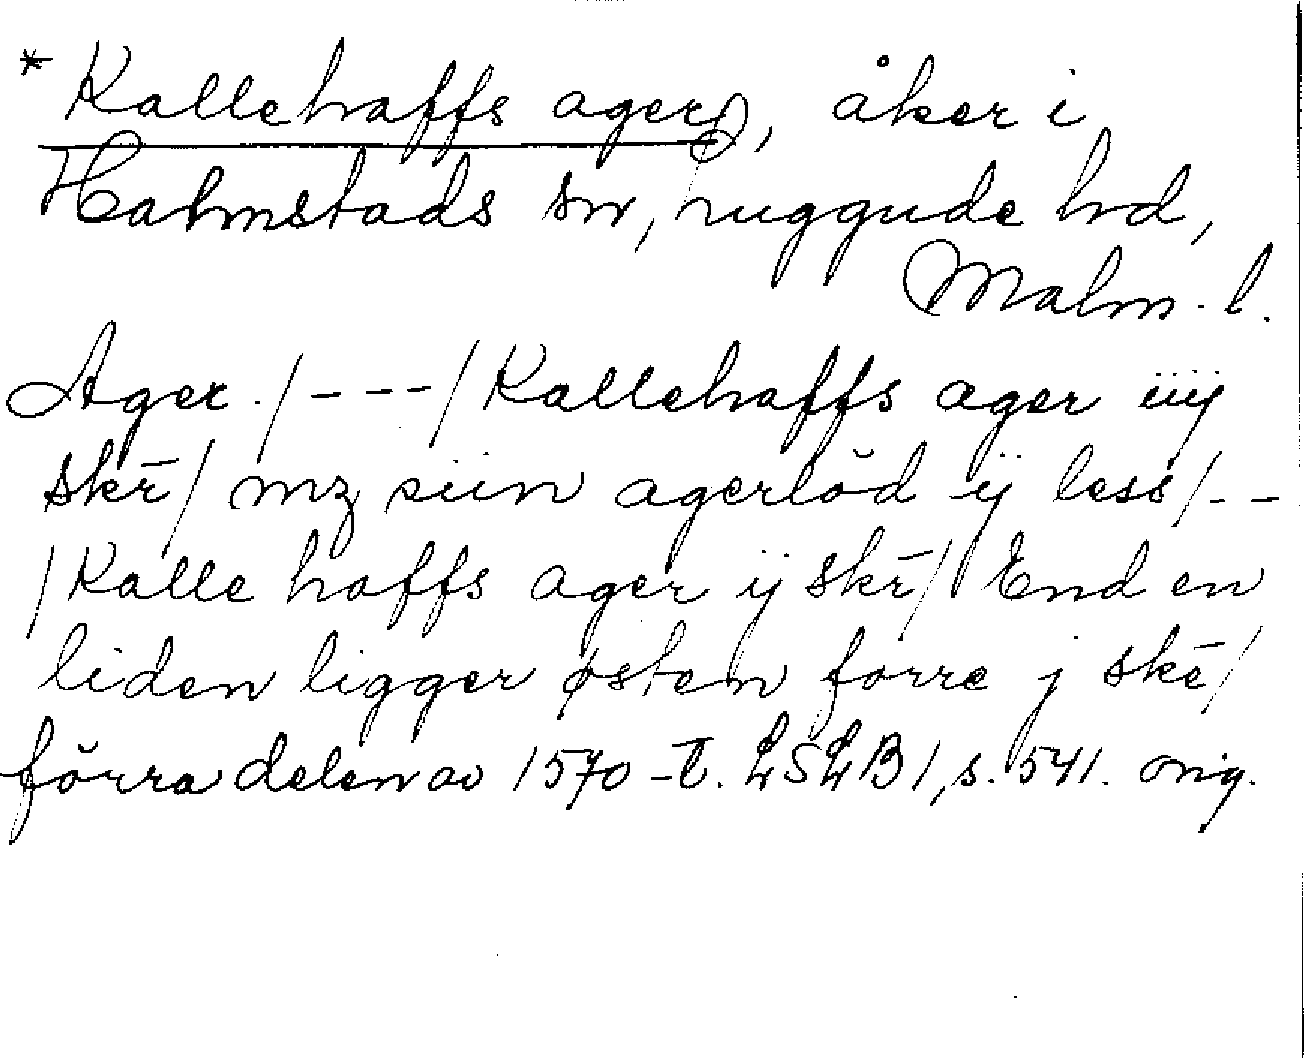 * Kallehaffs ager, åker i
Halmstads sn, Luggude hd,
Malm. l.
Ager. / - - - / Kallehaffs ager iiij
skr̄ / mz siin agerlŏd ij less / - -
/ Kalle haffs ager ij skr̄ / End en
liden ligger østen forre j skē /
förra delen av 1570-t. LSLB 1, s. 541. orig.